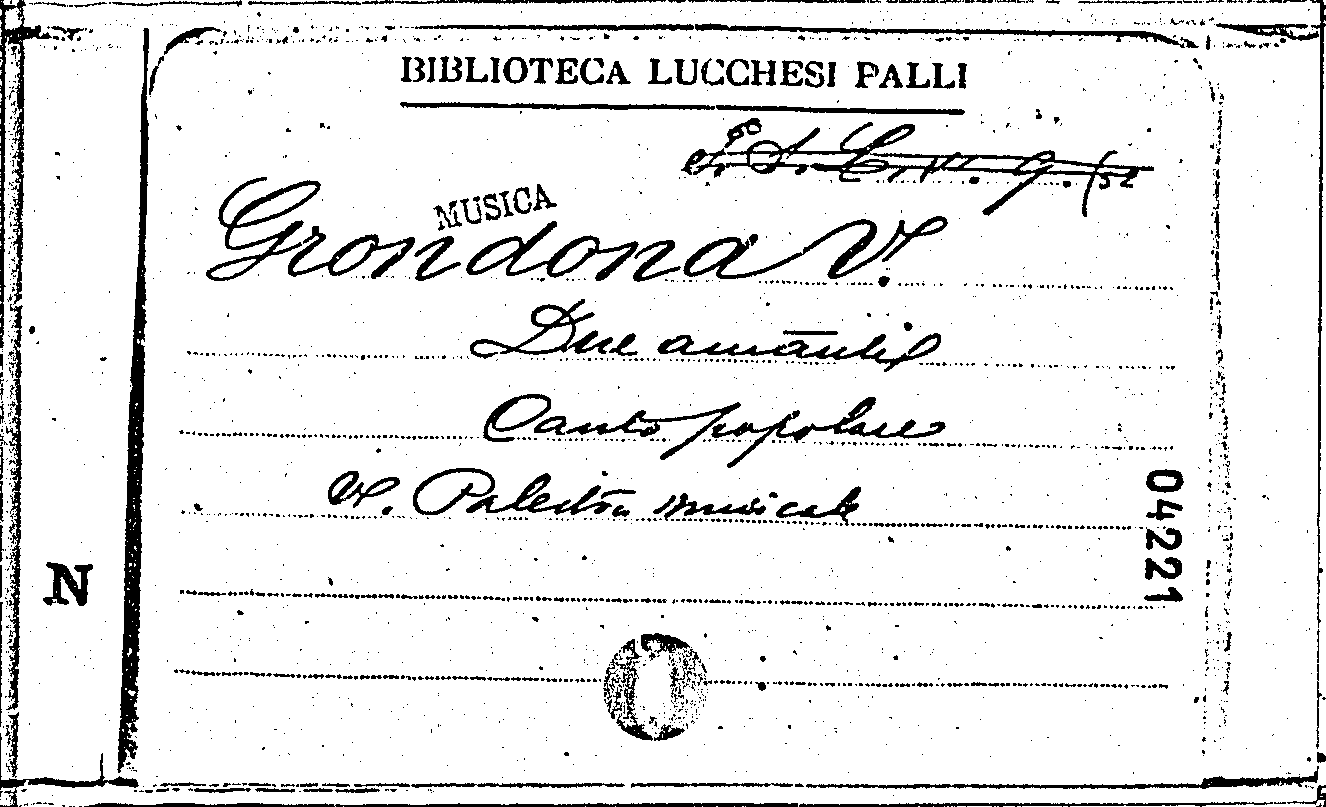 BIBLIOTECA LUCCHESI PALLI
MUSICA
Grondona V.
Due amanti
Canto popolare
V. Palestra musicale
04221
N